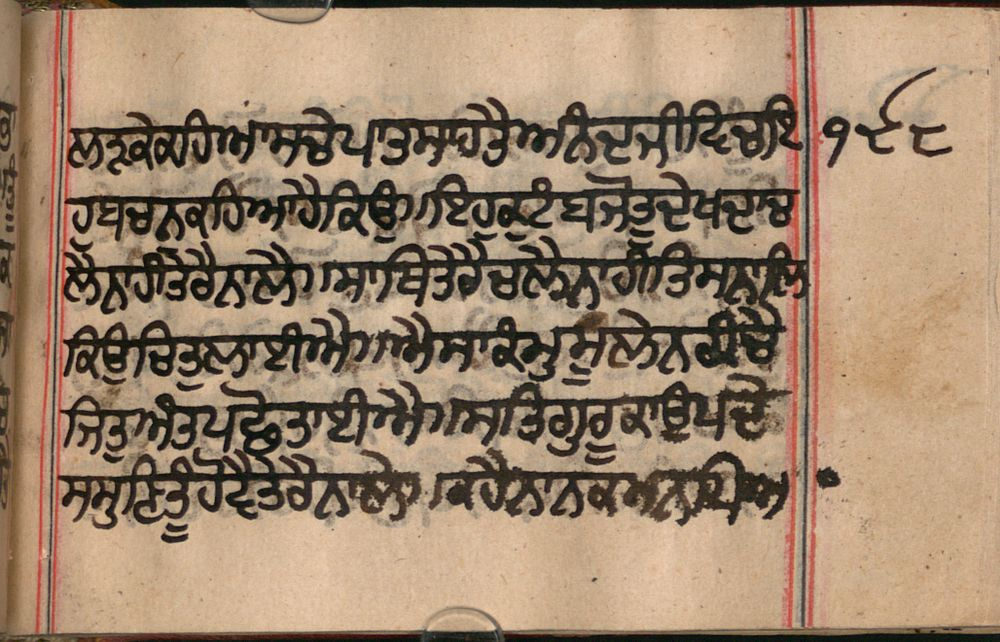 ਲਝਕੇਕਹਿਆਸਚੇਪਾਤਸਾਹਤੈਅਨੰਦਜੀਵਿਚਇ ੧੯੮
ਹੁਬਚਨਕਹਿਆਹੈਕਿਉ॥ਇਹੁਕੁਟੰਬਜੋਤੂਦੇਖਦਾਚ
ਲੈਨਾਹੀਤੇਰੈਨਾਲੇ॥ਸਾਥਿਤੇਰੈਚਲੈਨਾਹੀਤਿਸਨਾਲਿ
ਕਿਉਚਿਤੁਲਾਈਐ॥ਐਸਾਕੰਮੁਮੂਲੇਨਕੀਚੈ
ਜਿਤੁਅੰਤਪਛੋਤਾਈਐ॥ਸਤਿਗੁਰੂਕਾਉਪਦੇ
ਸਸੁਣਿਤੂੰਹੋਵੈਤੇਰੈਨਾਲੇ॥ਕਹੈਨਾਨਕਮਨਪਿਅ